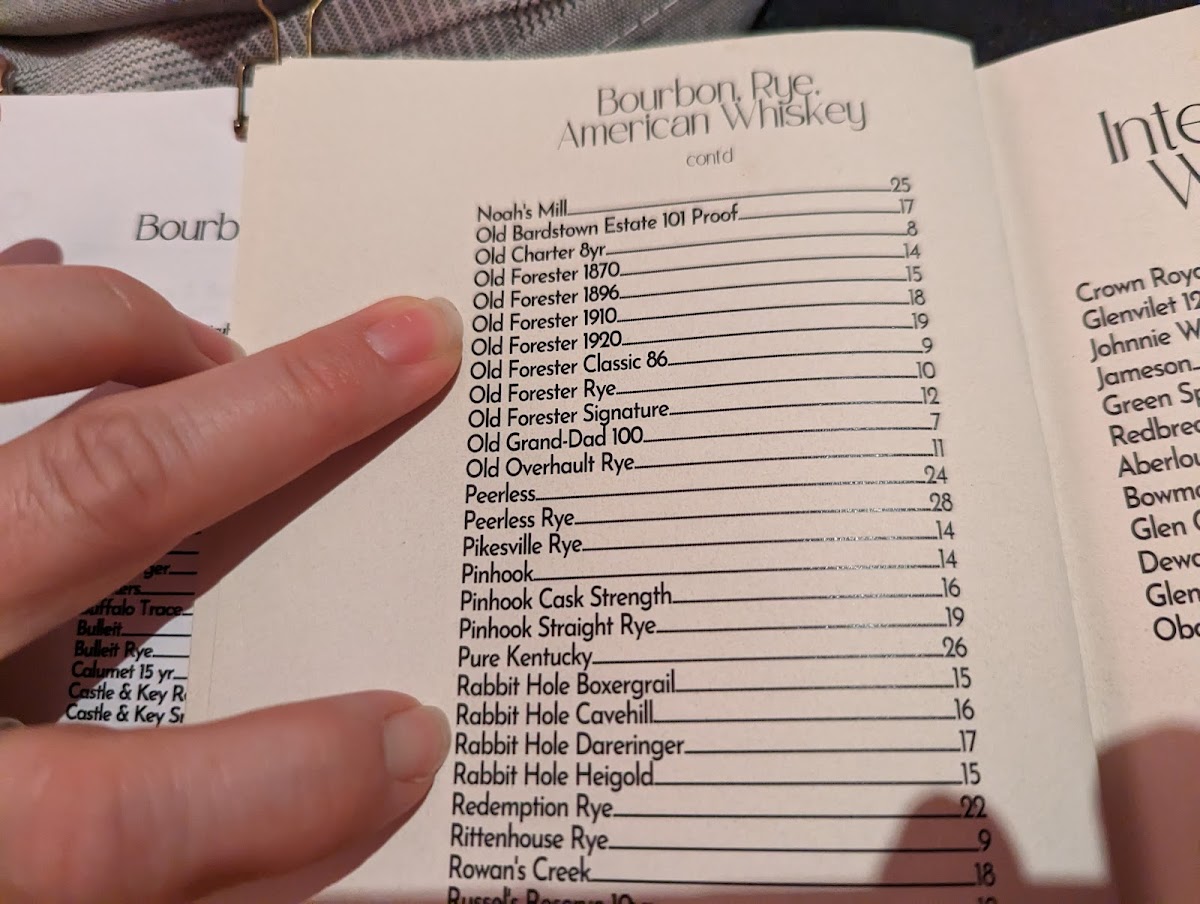 Bourb
Buffalo Trace
Bulleit
Bulleit Rye
Calumet 15 yr
Castle & Key
Castle & Key
Bourbon, Rye,
American Whiskey
cont'd
Noah's Mill 25
Old Bardstown Estate 101 Proof 17
Old Charter 8yr 8
Old Forester 1870 14
Old Forester 1896 15
Old Forester 1910 18
Old Forester 1920 19
Old Forester Classic 86 9
Old Forester Rye 10
Old Forester Signature 12
Old Grand-Dad 100 7
Old Overhault Rye 11
Peerless 24
Peerless Rye 28
Pikesville Rye 14
Pinhook 14
Pinhook Cask Strength 16
Pinhook Straight Rye 19
Pure Kentucky 26
Rabbit Hole Boxergrail 15
Rabbit Hole Cavehill 16
Rabbit Hole Dareringer 17
Rabbit Hole Heigold 15
Redemption Rye 22
Rittenhouse Rye 9
Rowan's Creek 18
Russel's Reserve 10
Inte
W
Crown Roya
Glenvilet 12
Johnnie W
Jameson
Green Sp
Redbrea
Aberlou
Bowmo
Glen
Dewa
Glen
Oba